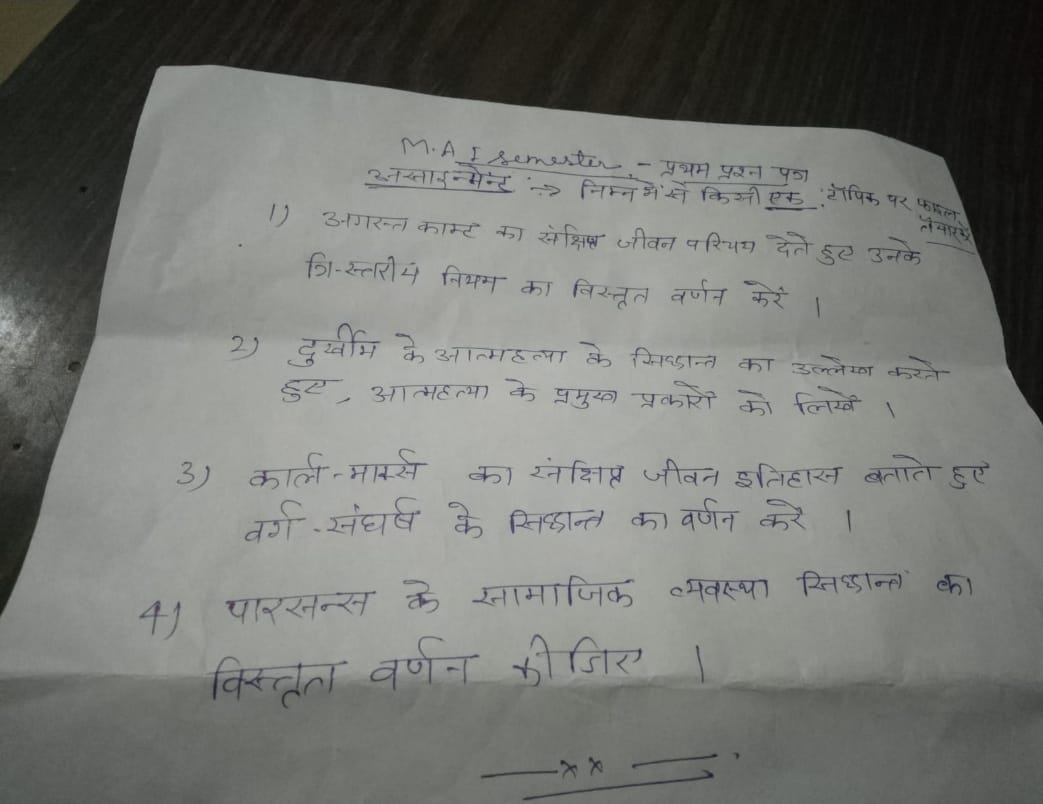 M.A I semester - प्रथम प्रश्न पत्र
असाइन्मेन्ट :→ निम्न में से किसी एक टॉपिक पर फाइल तैयार करें
1) अगस्त काम्ट का संक्षिप्त जीवन परिचय देते हुए उनके
त्रि-स्तरीय नियम का विस्तृत वर्णन करें ।
2) दुर्खीम के आत्महत्या के सिद्धान्त का उल्लेख करते
हुए, आत्महत्या के प्रमुख प्रकारों को लिखें ।
3) कार्ल-मार्क्स का संक्षिप्त जीवन इतिहास बताते हुए
वर्ग-संघर्ष के सिद्धान्त का वर्णन करें ।
4) पारसन्स के सामाजिक व्यवस्था सिद्धान्त का
विस्तृत वर्णन कीजिए ।
—xx—